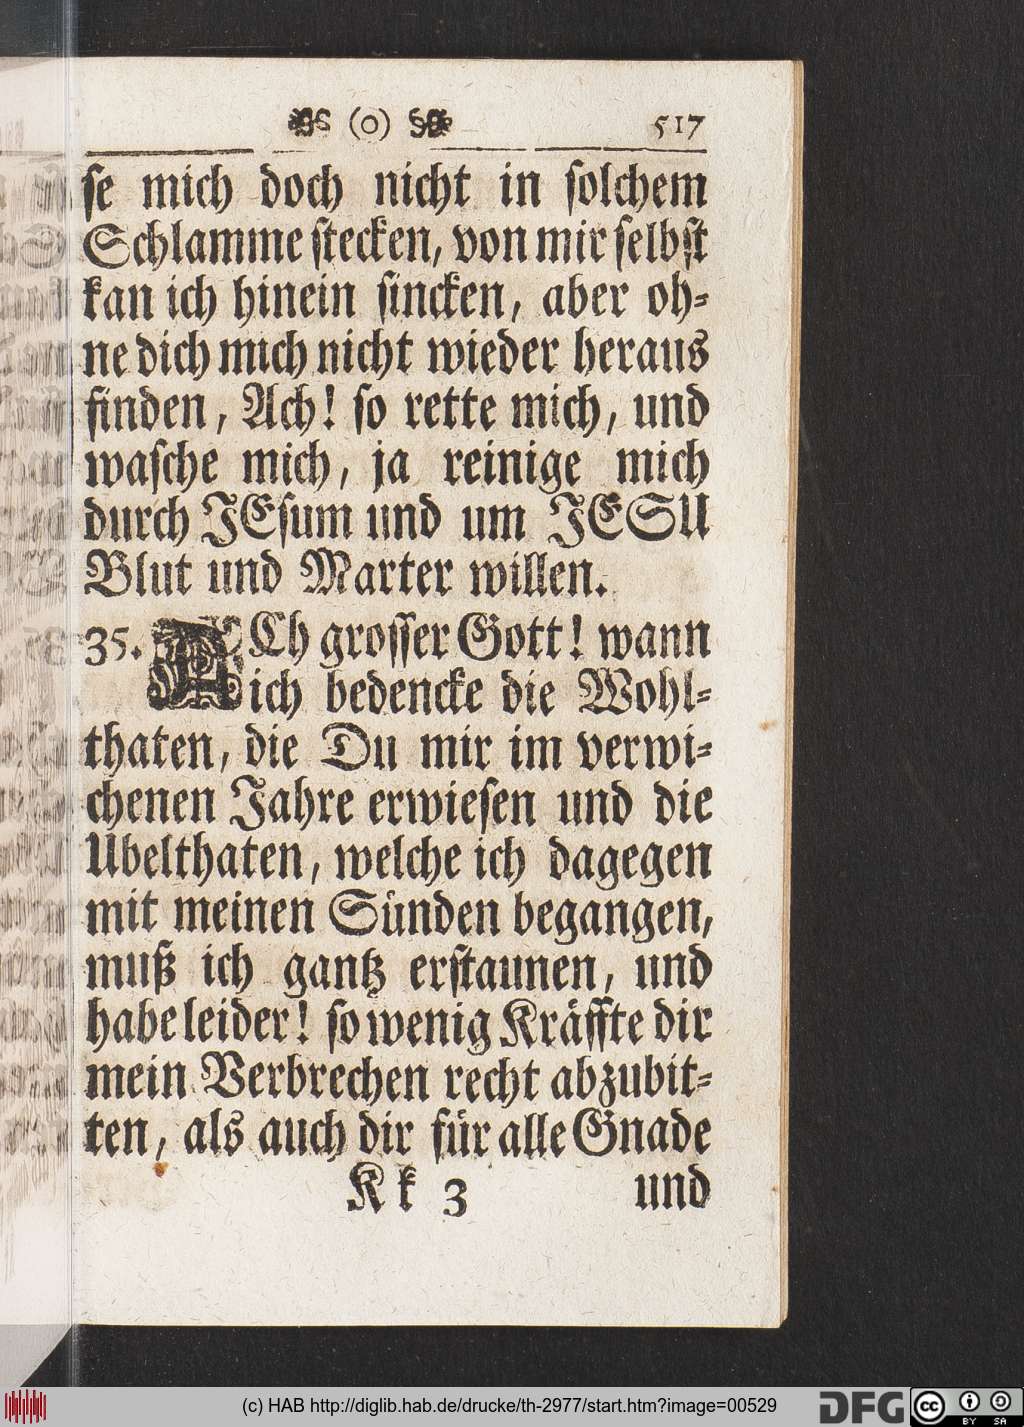 (o) 517
se mich doch nicht in solchem
Schlamme stecken, von mir selbst
kan ich hinein sincken, aber oh-
ne dich mich nicht wieder heraus
finden, Ach! so rette mich, und
wasche mich, ja reinige mich
durch JEsum und um JESU
Blut und Marter willen.
35. ACh grosser Gott! wann
ich bedencke die Wohl-
thaten, die Du mir im verwi-
chenen Jahre erwiesen und die
Ubelthaten, welche ich dagegen
mit meinen Sünden begangen,
muß ich gantz erstaunen, und
habe leider! so wenig Kräffte dir
mein Verbrechen recht abzubit-
ten, als auch dir für alle Gnade
Kk 3 und
(c) HAB http://diglib.hab.de/drucke/th-2977/start.htm?image=00529
DFG
cc BY SA